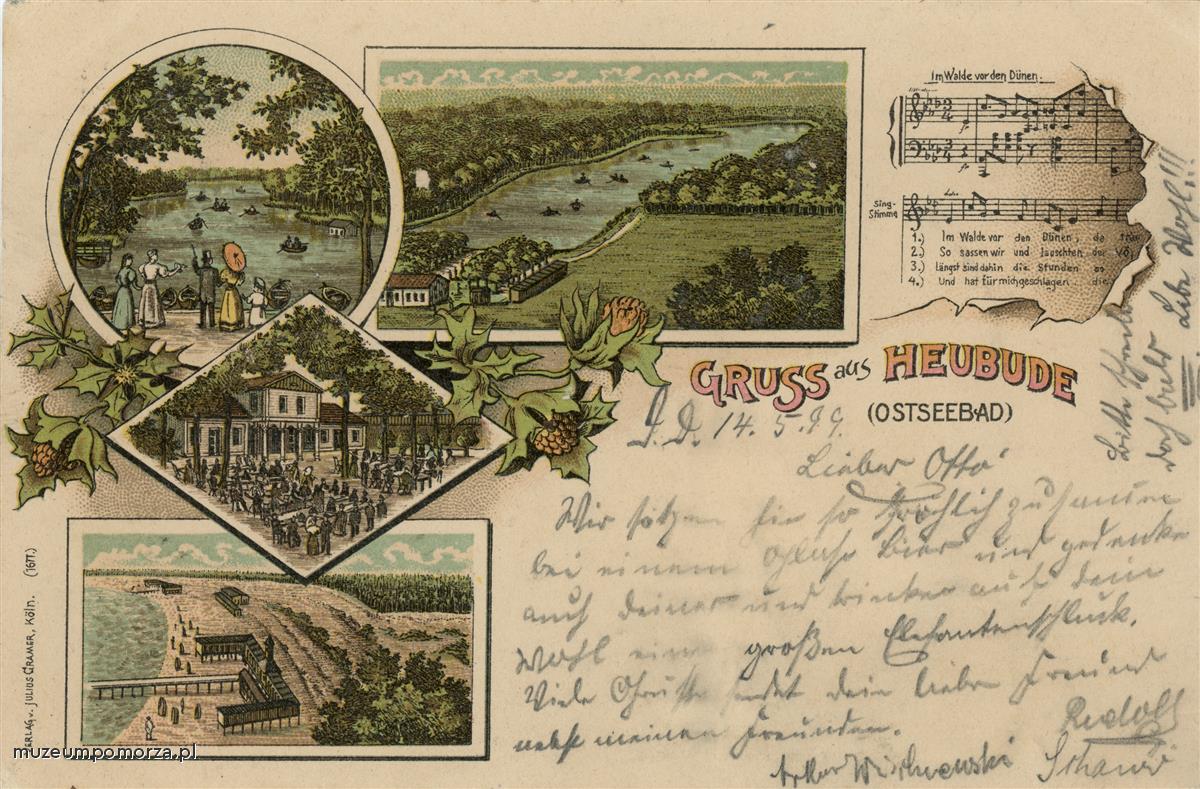 Im Walde vor den Dünen.
Sing-
Stimme
1.) Im Walde vor den Dünen, da
2.) So sassen wir und lauschten der
3.) längst sind dahin die Stunden
4.) Und hat für mich geschlagen die
GRUSS aus HEUBUDE
(OSTSEEBAD)
D. D. 14. 5. 99.
Lieber Otto
Wir sitzen hier so fröhlich zusammen
bei einem Glase Bier und gedenken
auch deiner und trinken auf dein
Wohl einen großen Elefantenschluck.
Viele Grüße sendet dein lieber Freund
nebst meinen Freunden. Rudolf
Arthur
Bitte
doch bald Lebe Wohl!!!
VERLAG v. JULIUS CRAMER, KÖLN. (1677.)
muzeumpomorza.pl